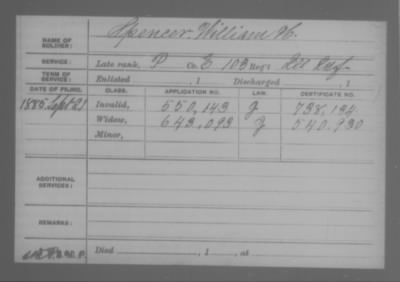 NAME OF SOLDIER: Spencer, William H.
SERVICE: Late rank, P Co. E 103 Reg't Ill Inf
TERM OF SERVICE: Enlisted , 1 Discharged , 1
DATE OF FILING. CLASS. APPLICATION NO. LAW. CERTIFICATE NO.
1888, Sept 21 Invalid, 550,143 J 738,134
Widow, 643,093 J 540,930
Minor,
ADDITIONAL SERVICES:
REMARKS:
Died , 1 , at